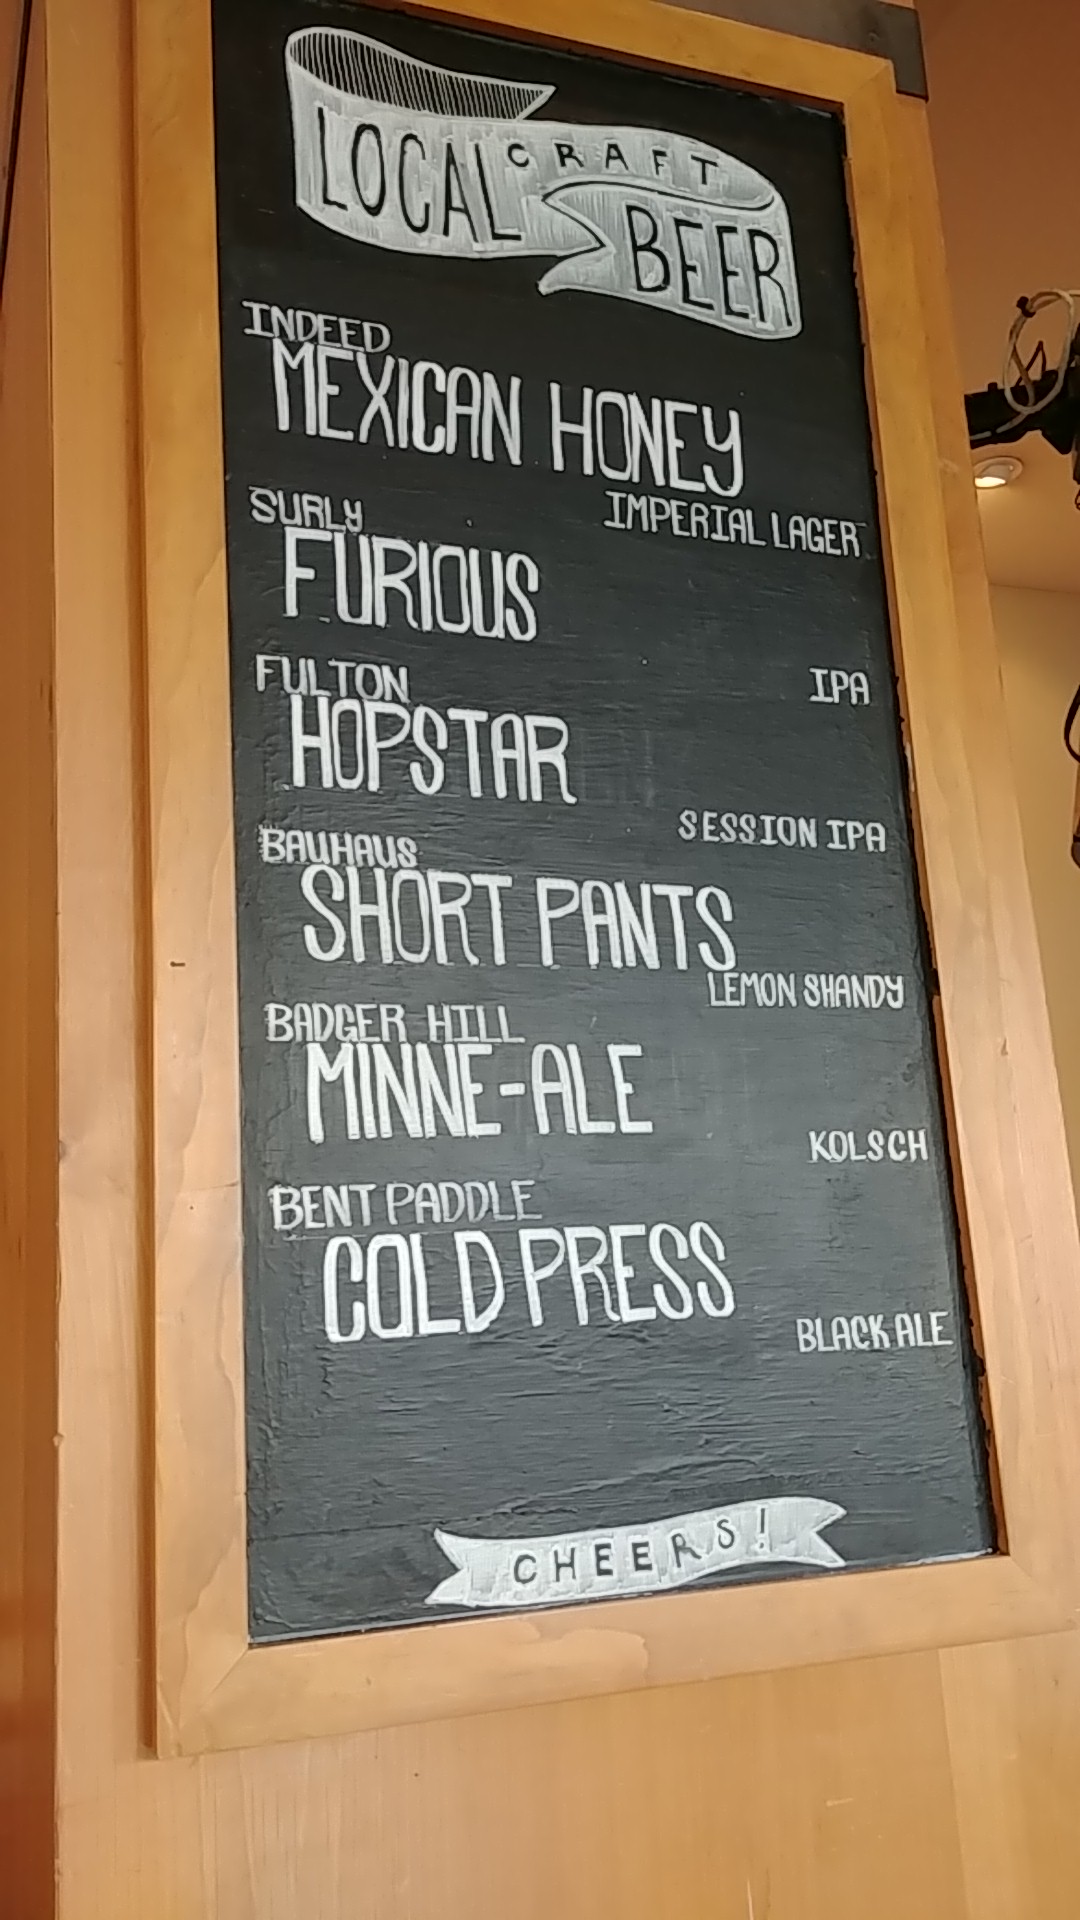 LOCAL CRAFT
BEER
INDEED
MEXICAN HONEY
IMPERIAL LAGER
SURLY
FURIOUS
IPA
FULTON
HOPSTAR
SESSION IPA
BAUHAUS
SHORT PANTS
LEMON SHANDY
BADGER HILL
MINNE-ALE
KOLSCH
BENT PADDLE
COLD PRESS
BLACK ALE
CHEERS!